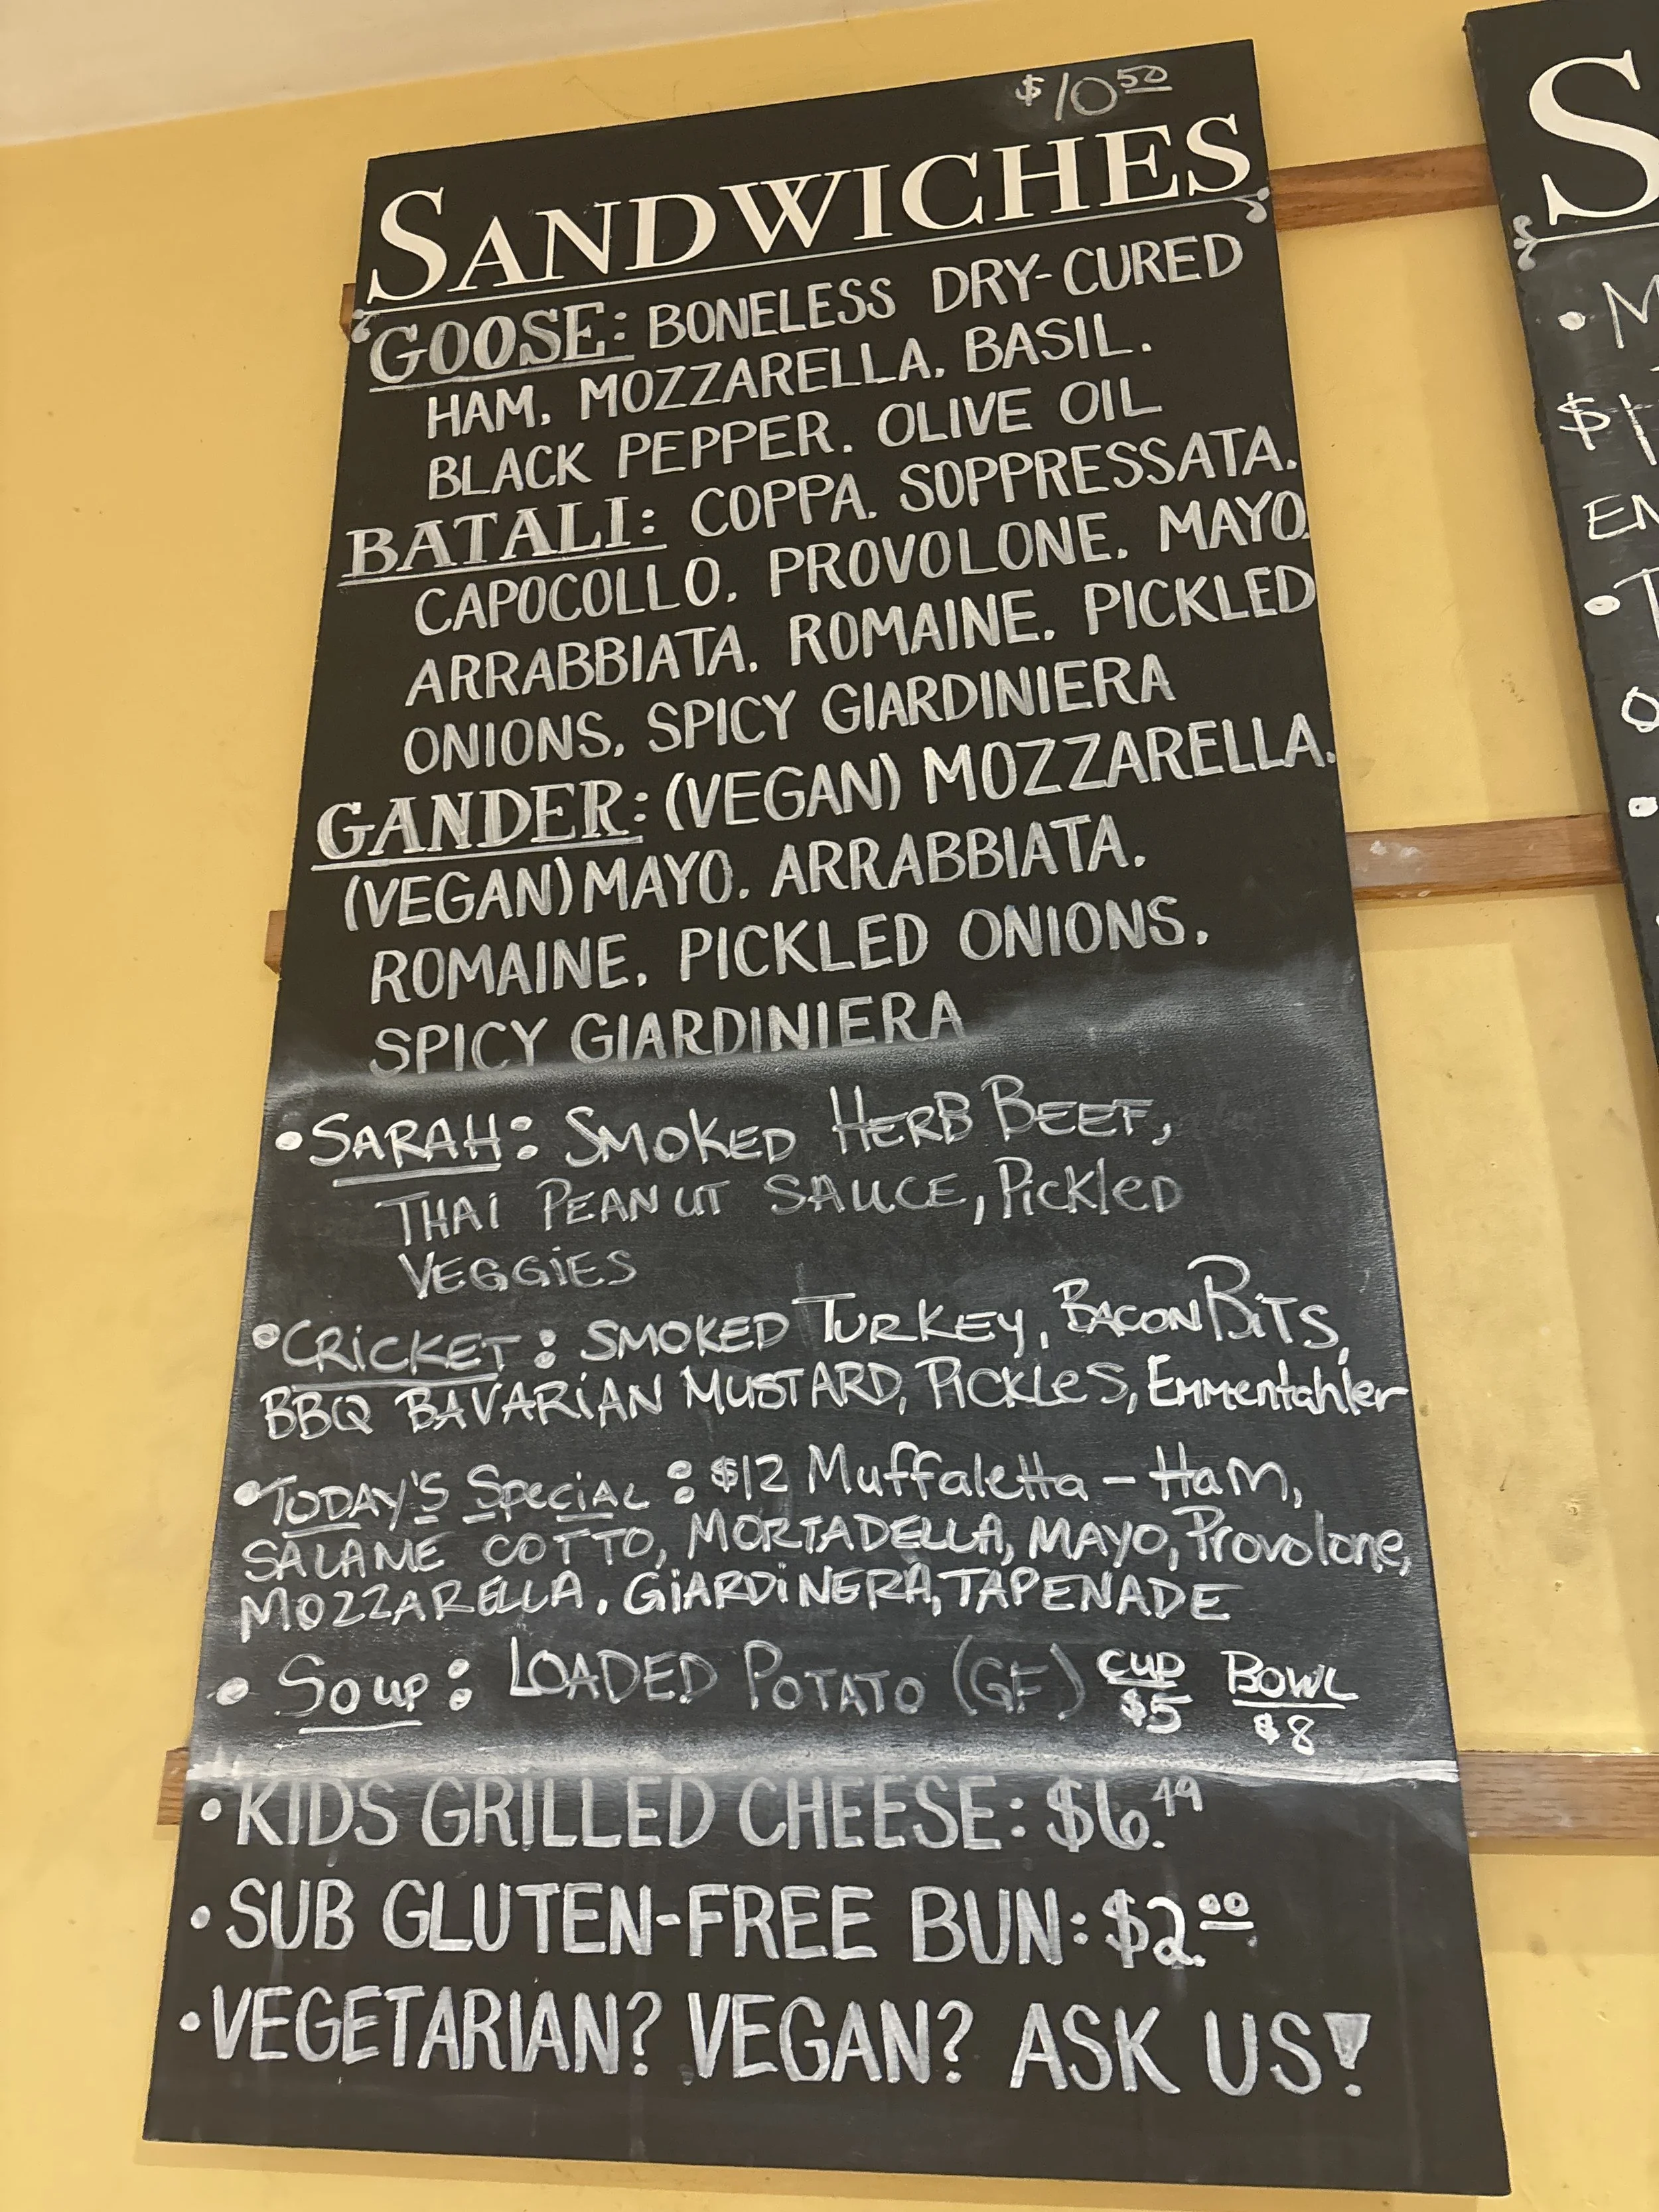 $10.50
SANDWICHES
GOOSE: BONELESS DRY-CURED
HAM. MOZZARELLA. BASIL.
BLACK PEPPER. OLIVE OIL
BATALI: COPPA. SOPPRESSATA.
CAPOCOLLO. PROVOLONE. MAYO.
ARRABBIATA. ROMAINE. PICKLED
ONIONS. SPICY GIARDINIERA
GANDER: (VEGAN) MOZZARELLA.
(VEGAN) MAYO. ARRABBIATA.
ROMAINE. PICKLED ONIONS.
SPICY GIARDINIERA
• SARAH: SMOKED HERB BEEF,
THAI PEANUT SAUCE, PICKLED
VEGGIES
• CRICKET: SMOKED TURKEY, BACON BITS,
BBQ BAVARIAN MUSTARD, PICKLES, Emmentahler
• TODAY'S SPECIAL: $12 Muffaletta – HAM,
SALAME COTTO, MORTADELLA, MAYO, Provolone,
MOZZARELLA, GIARDINERA, TAPENADE
• Soup: LOADED POTATO (GF) CUP $5 BOWL $8
• KIDS GRILLED CHEESE: $6.49
• SUB GLUTEN-FREE BUN: $2.00
• VEGETARIAN? VEGAN? ASK US!
S
• M
$1
EN
•
•